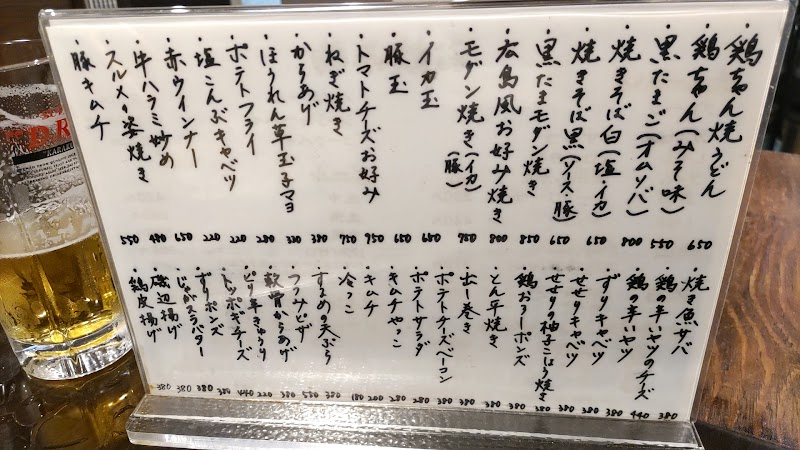 鶏ちゃん焼うどん 650
鶏ちゃん(みそ味) 550
黒たまご(オムソバ) 800
焼きそば白(塩・イカ) 650
焼きそば黒(ソース・豚) 650
黒たまモダン焼き 850
広島風お好み焼き 800
モダン焼き(イカ)(豚) 750
イカ玉 650
豚玉 650
トマトチーズお好み 950
ねぎ焼き 750
からあげ 380
ほうれん草玉子マヨ 330
ポテトフライ 280
塩こんぶキャベツ 220
赤ウインナー 220
牛ハラミ炒め 650
スルメの姿焼き 480
豚キムチ 550
焼き魚サバ 380
鶏の辛いヤツのチーズ 440
鶏の辛いヤツ 380
ずりキャベツ 380
せせりキャベツ 380
せせりの柚子こしょう焼き 380
鶏おろしポンズ 380
とん平焼き 380
出し巻き 380
ポテトチーズベーコン 380
ポテトサラダ 280
キムチやっこ 280
キムチ 200
冷っこ 180
するめの天ぷら 380
つつみピザ 550
軟骨からあげ 380
ピリ辛きゅうり 220
トッポギチーズ 440
ずりポンズ 380
じゃがスラバター 380
磯辺揚げ 380
鶏皮揚げ 380